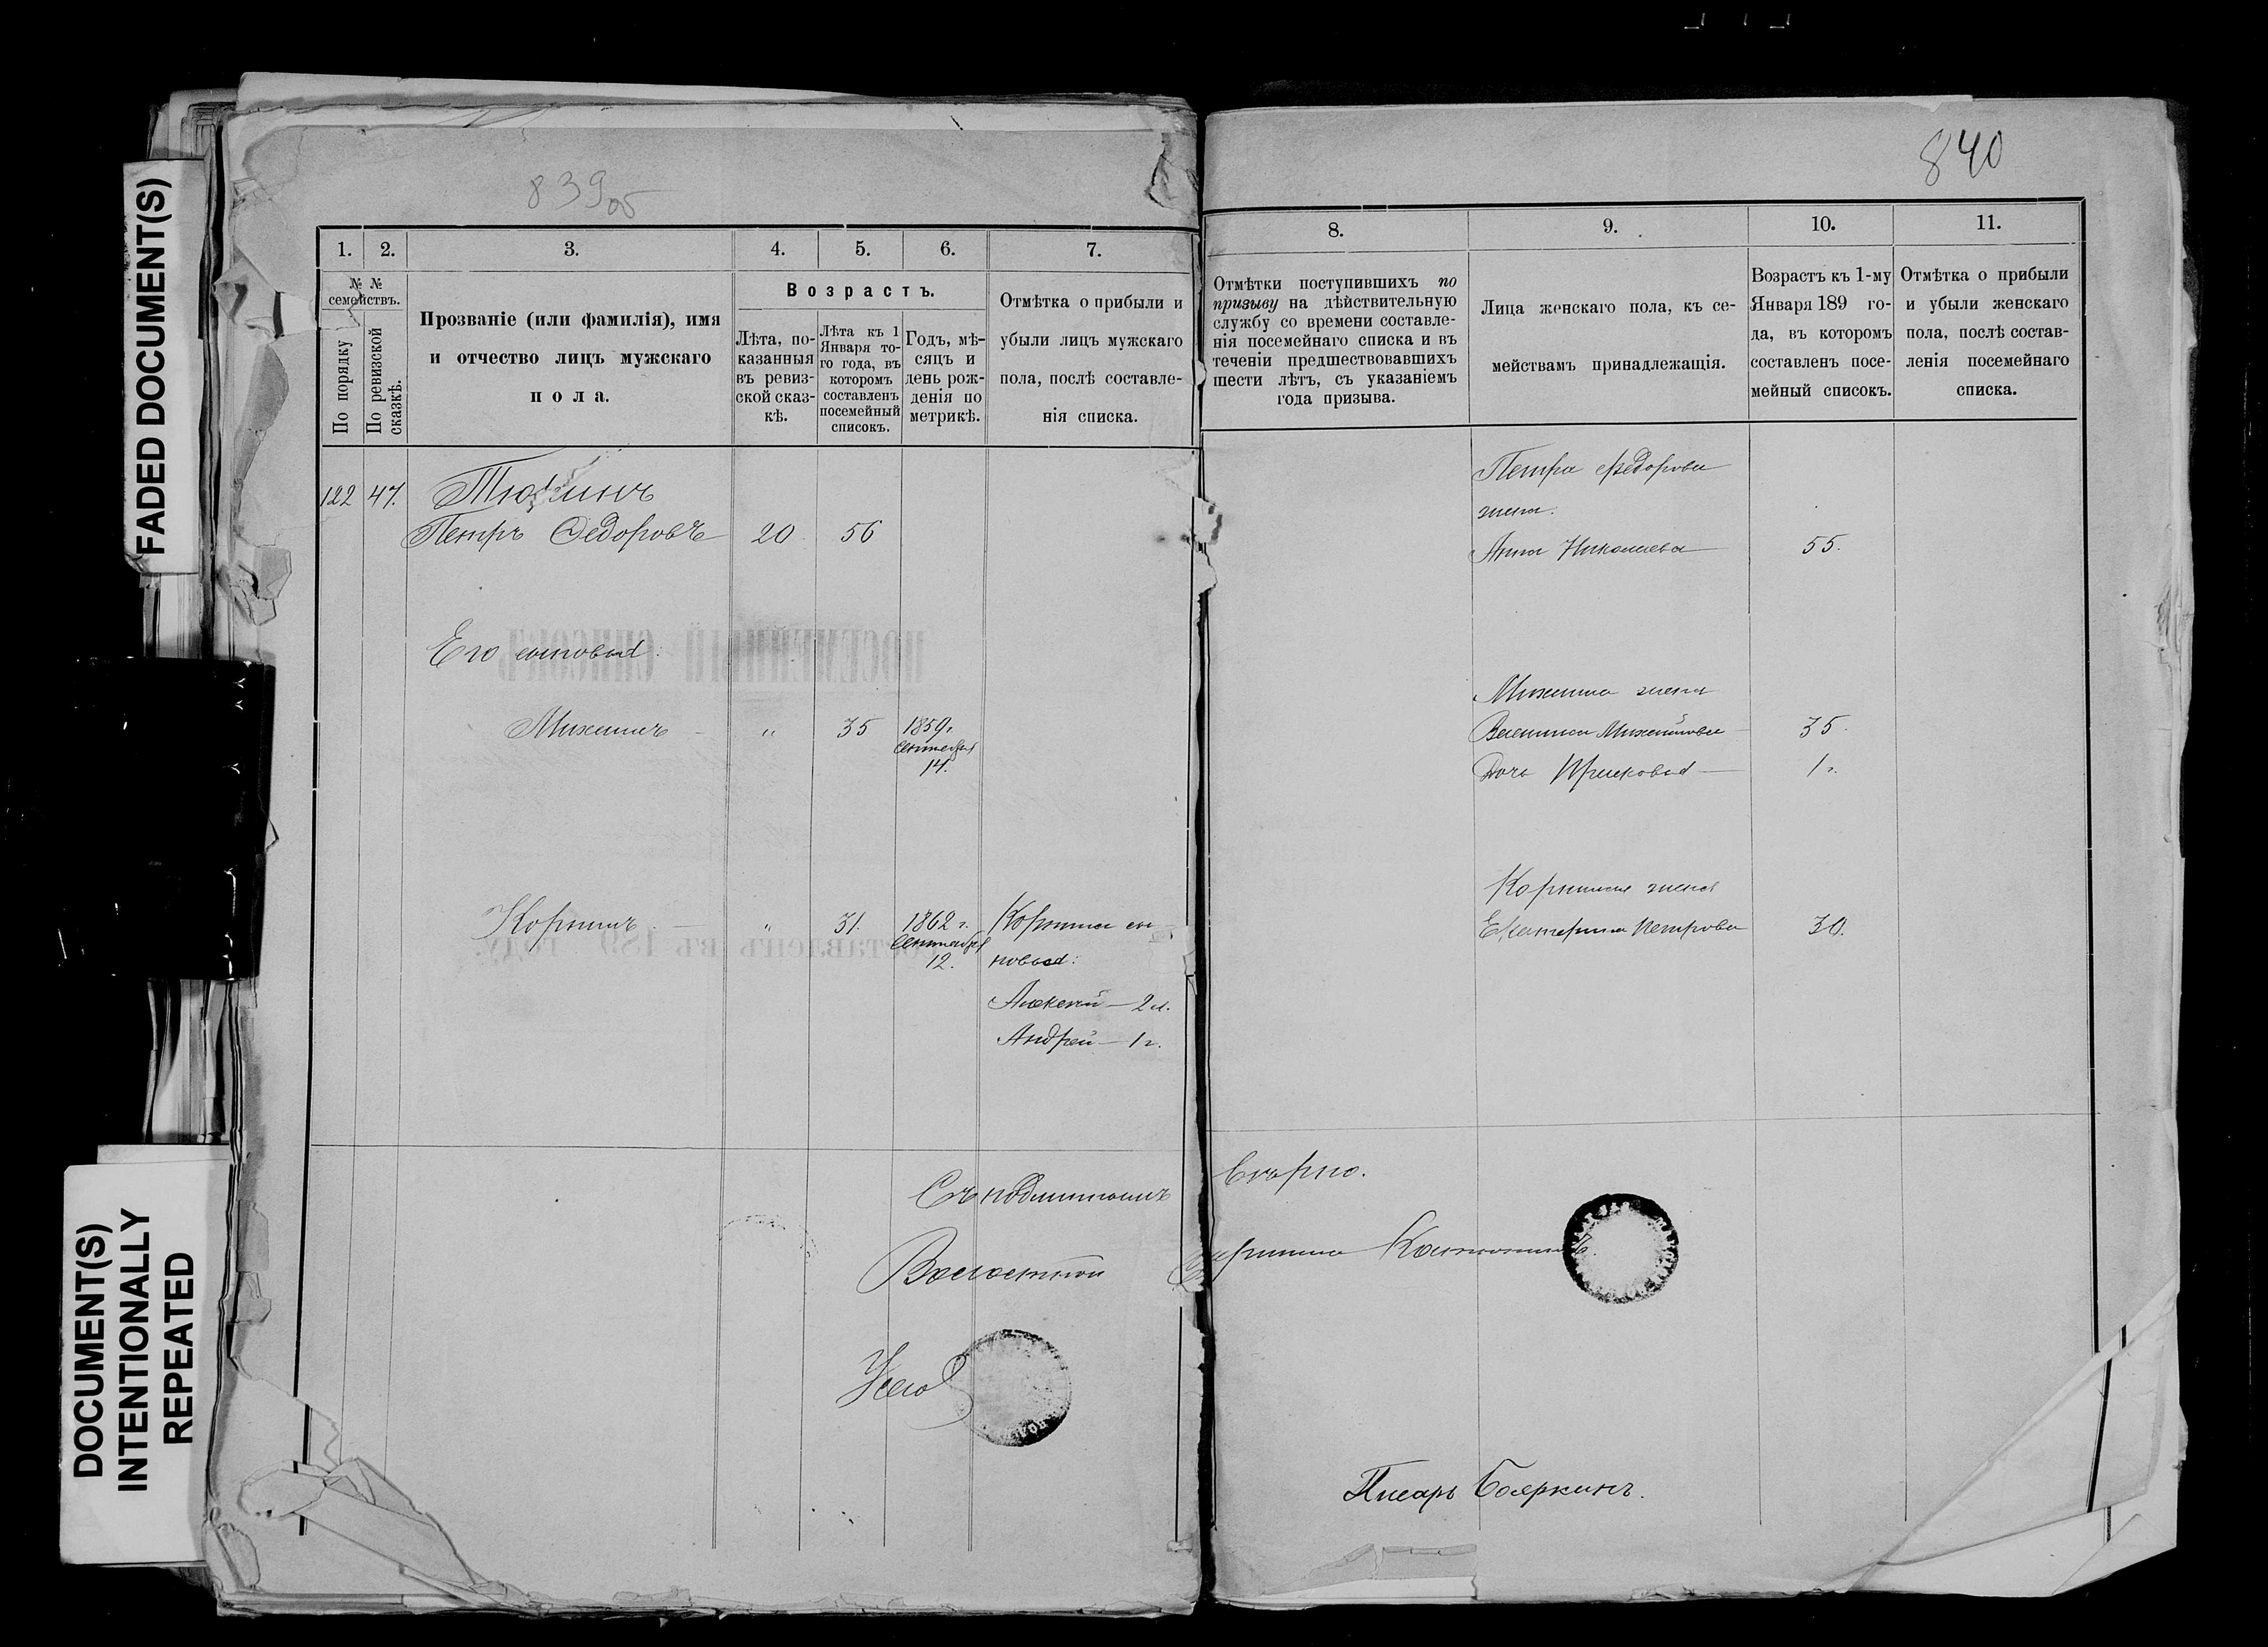 FADED DOCUMENT(S)
DOCUMENT(S)
INTENTIONALLY
REPEATED
839 об
840
1. 2. 3. 4. 5. 6. 7.
№ №
семействъ.
По порядку
По ревизской
сказкѣ.
Прозваніе (или фамилія), имя
и отчество лицъ мужскаго
пола.
Возрастъ.
Лѣта, по-
казанныя
въ ревиз-
ской сказ-
кѣ.
Лѣта къ 1
Января то-
го года, въ
которомъ
составленъ
посемейный
списокъ.
Годъ, мѣ-
сяцъ и
день рож-
денія по
метрикѣ.
Отмѣтка о прибыли и
убыли лицъ мужскаго
пола, послѣ составле-
нія списка.
122 47.
Петръ Федоровъ 20 56
Его сыновья:
Михаилъ - " 35 1859 г.
Сентября
14.
Корнилъ - " 31. 1862 г.
Сентября
12.
Корнила сы-
новья:
Алексѣй — 2 л.
Андрей — 1 г.
Съ подлиннымъ
Волостной
8. 9. 10. 11.
Отмѣтки поступившихъ по
призыву на дѣйствительную
службу со времени составле-
нія посемейнаго списка и въ
теченіи предшествовавшихъ
шести лѣтъ, съ указаніемъ
года призыва.
Лица женскаго пола, къ се-
мействамъ принадлежащія.
Возрастъ къ 1-му
Января 189 го-
да, въ которомъ
составленъ посе-
мейный списокъ.
Отмѣтка о прибыли
и убыли женскаго
пола, послѣ состав-
ленія посемейнаго
списка.
Петра Федорова
жена.
Анна Николаева — 55.
Михаила жена
Михайлова 35.
Дочь — 1 г.
Корнила жена
Екатерина Петрова 30.
вѣрно.
Старшина
Писарь Бояркинъ.